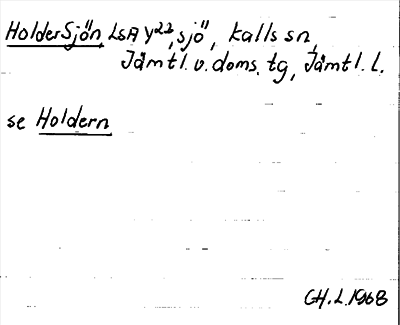 HolderSjön, LSA y²², sjö, Kalls sn,
Jämtl. v. doms. tg, Jämtl. l.
se Holdern
GH. L. 1968